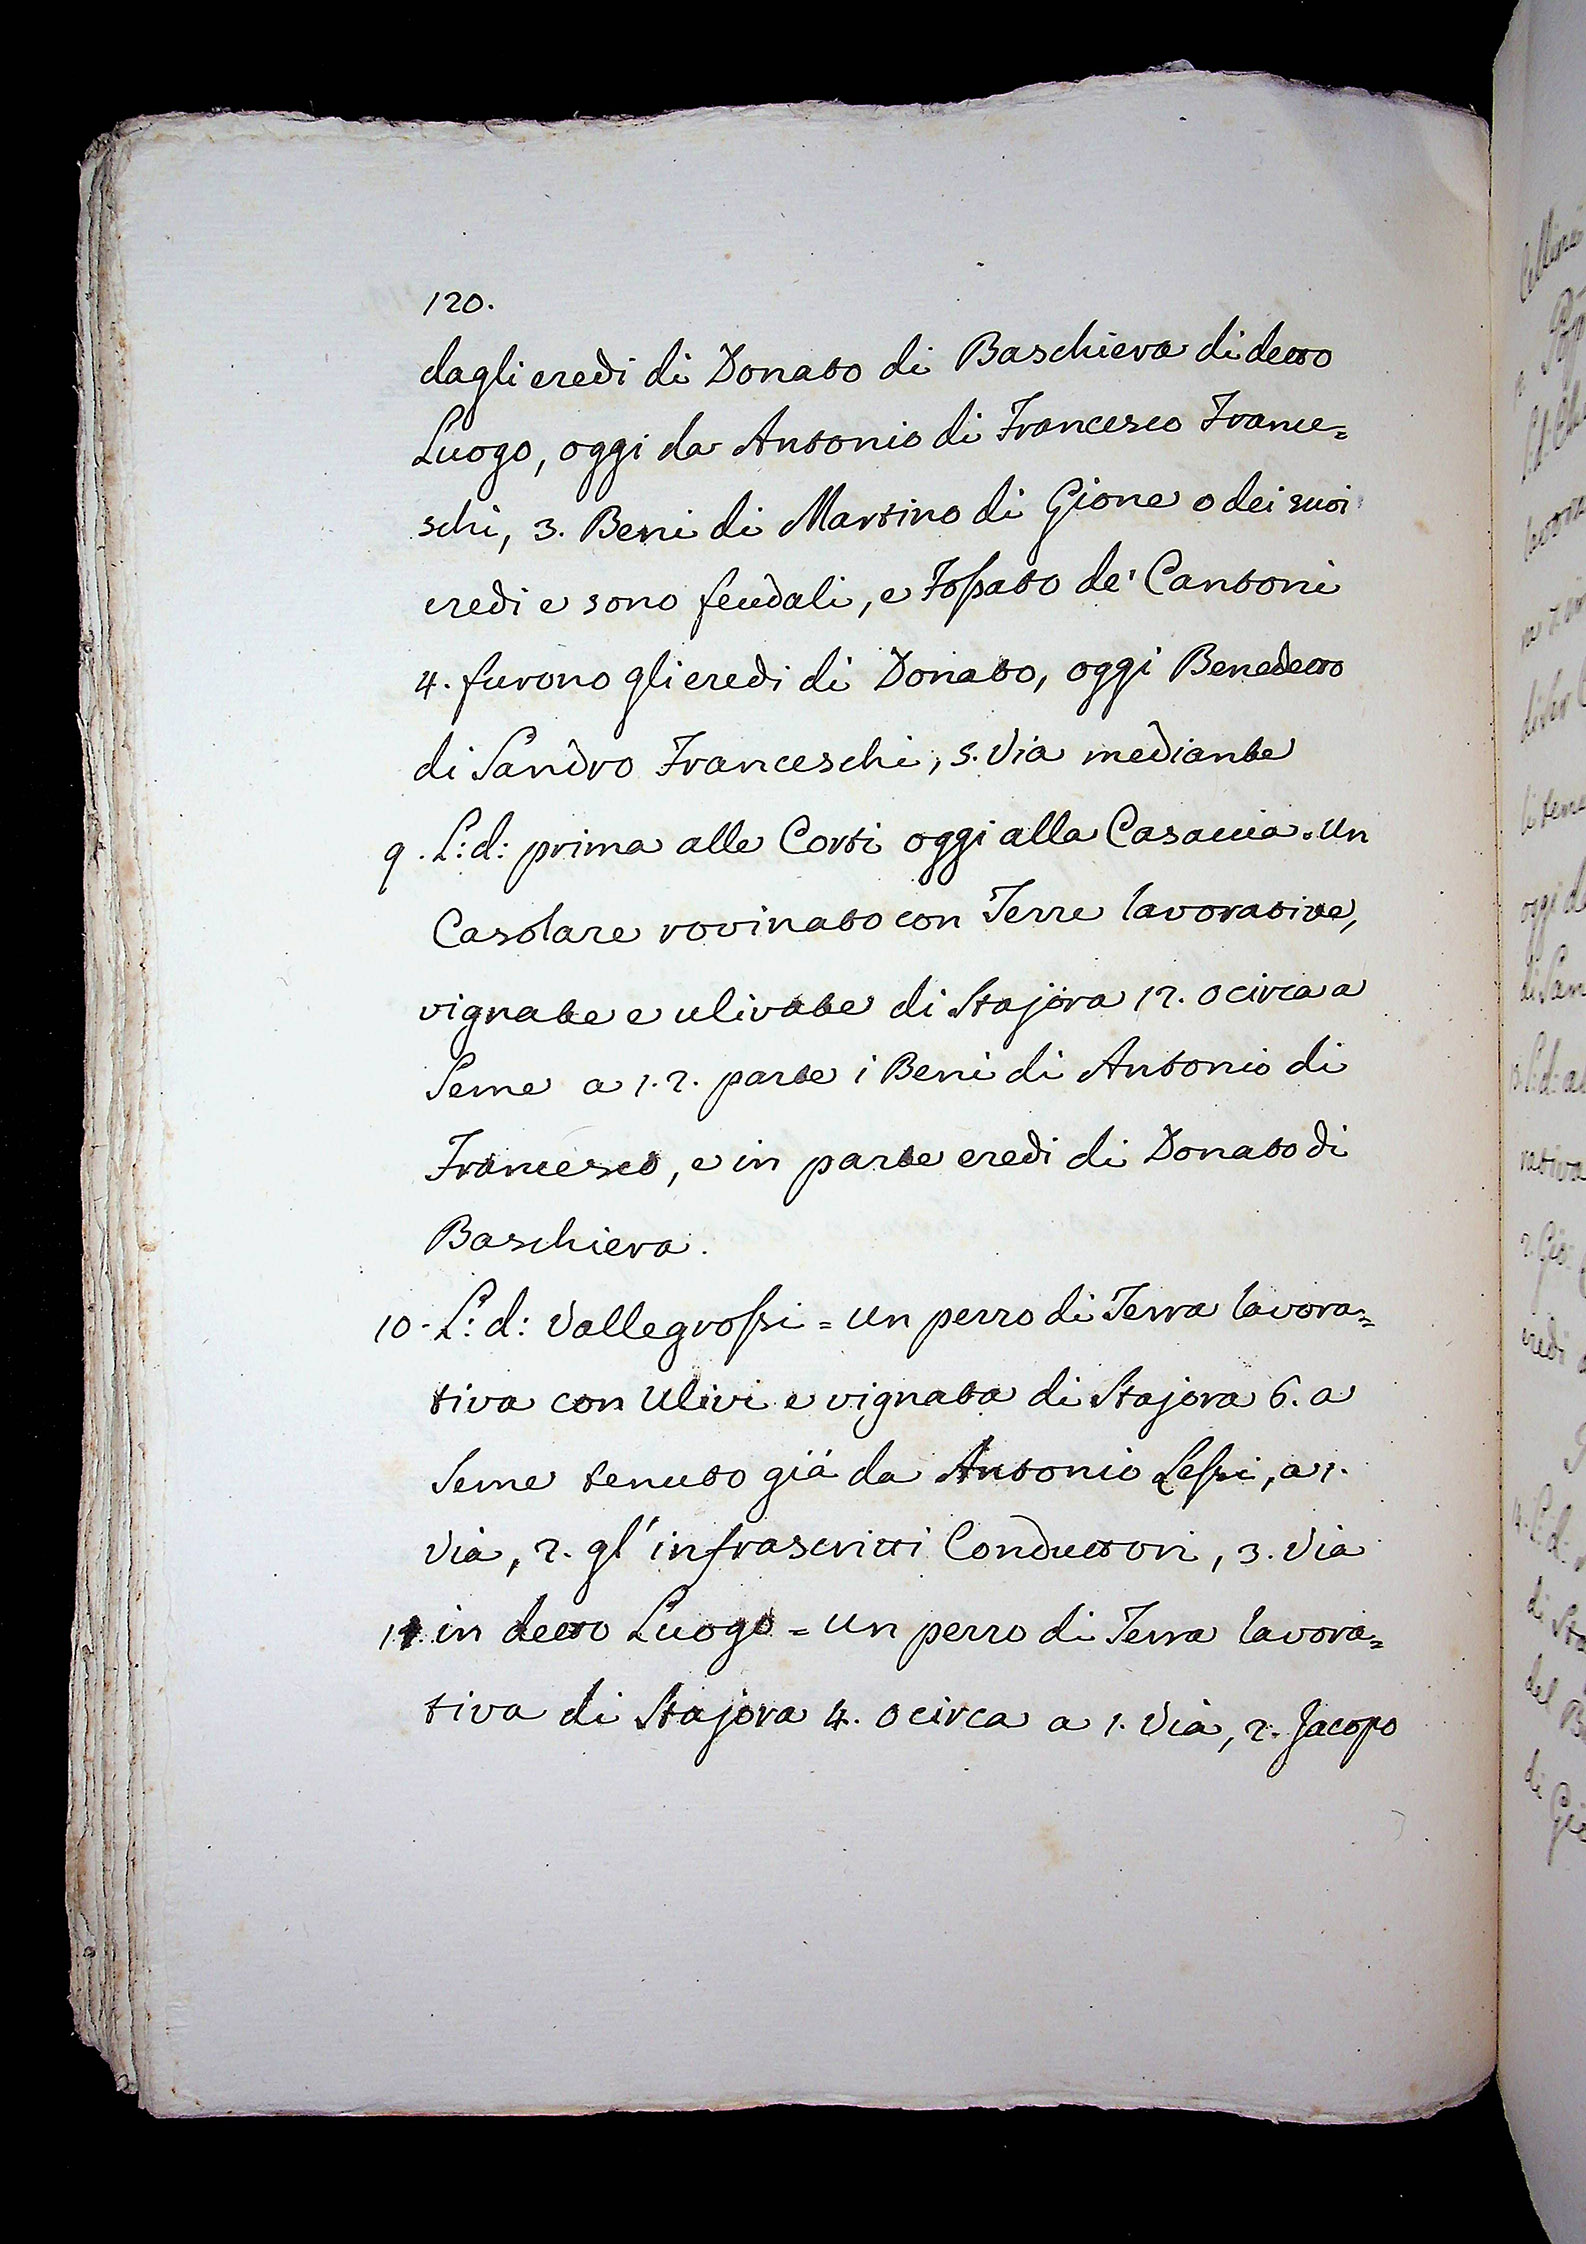 120.
dagli eredi di Donato di Baschiera di detto
Luogo, oggi da Antonio di Francesco France=
schi, 3. Beni di Martino di Gione o dei suoi
eredi e sono feudali, e Fossato de' Cantoni
4. furono gli eredi di Donato, oggi Benedetto
di Sandro Franceschi, 5. Via mediante
9. L: d: prima alle Corti oggi alla Casaccia = un
Casolare rovinato con Terre lavorative,
vignate e ulivate di Stajora 12. o circa a
Seme a 1. 2. parte i Beni di Antonio di
Francesco, e in parte eredi di Donato di
Baschiera.
10. L: d: Vallegrossi = un pezzo di Terra lavora=
tiva con Ulivi e vignata di Stajora 6. a
Seme tenuto già da Antonio Lessi, a 1.
Via, 2. gl' infrascritti Conduttori, 3. Via
11. in detto Luogo = un pezzo di Terra lavora=
tiva di Stajora 4. o circa a 1. Via, 2. Jacopo